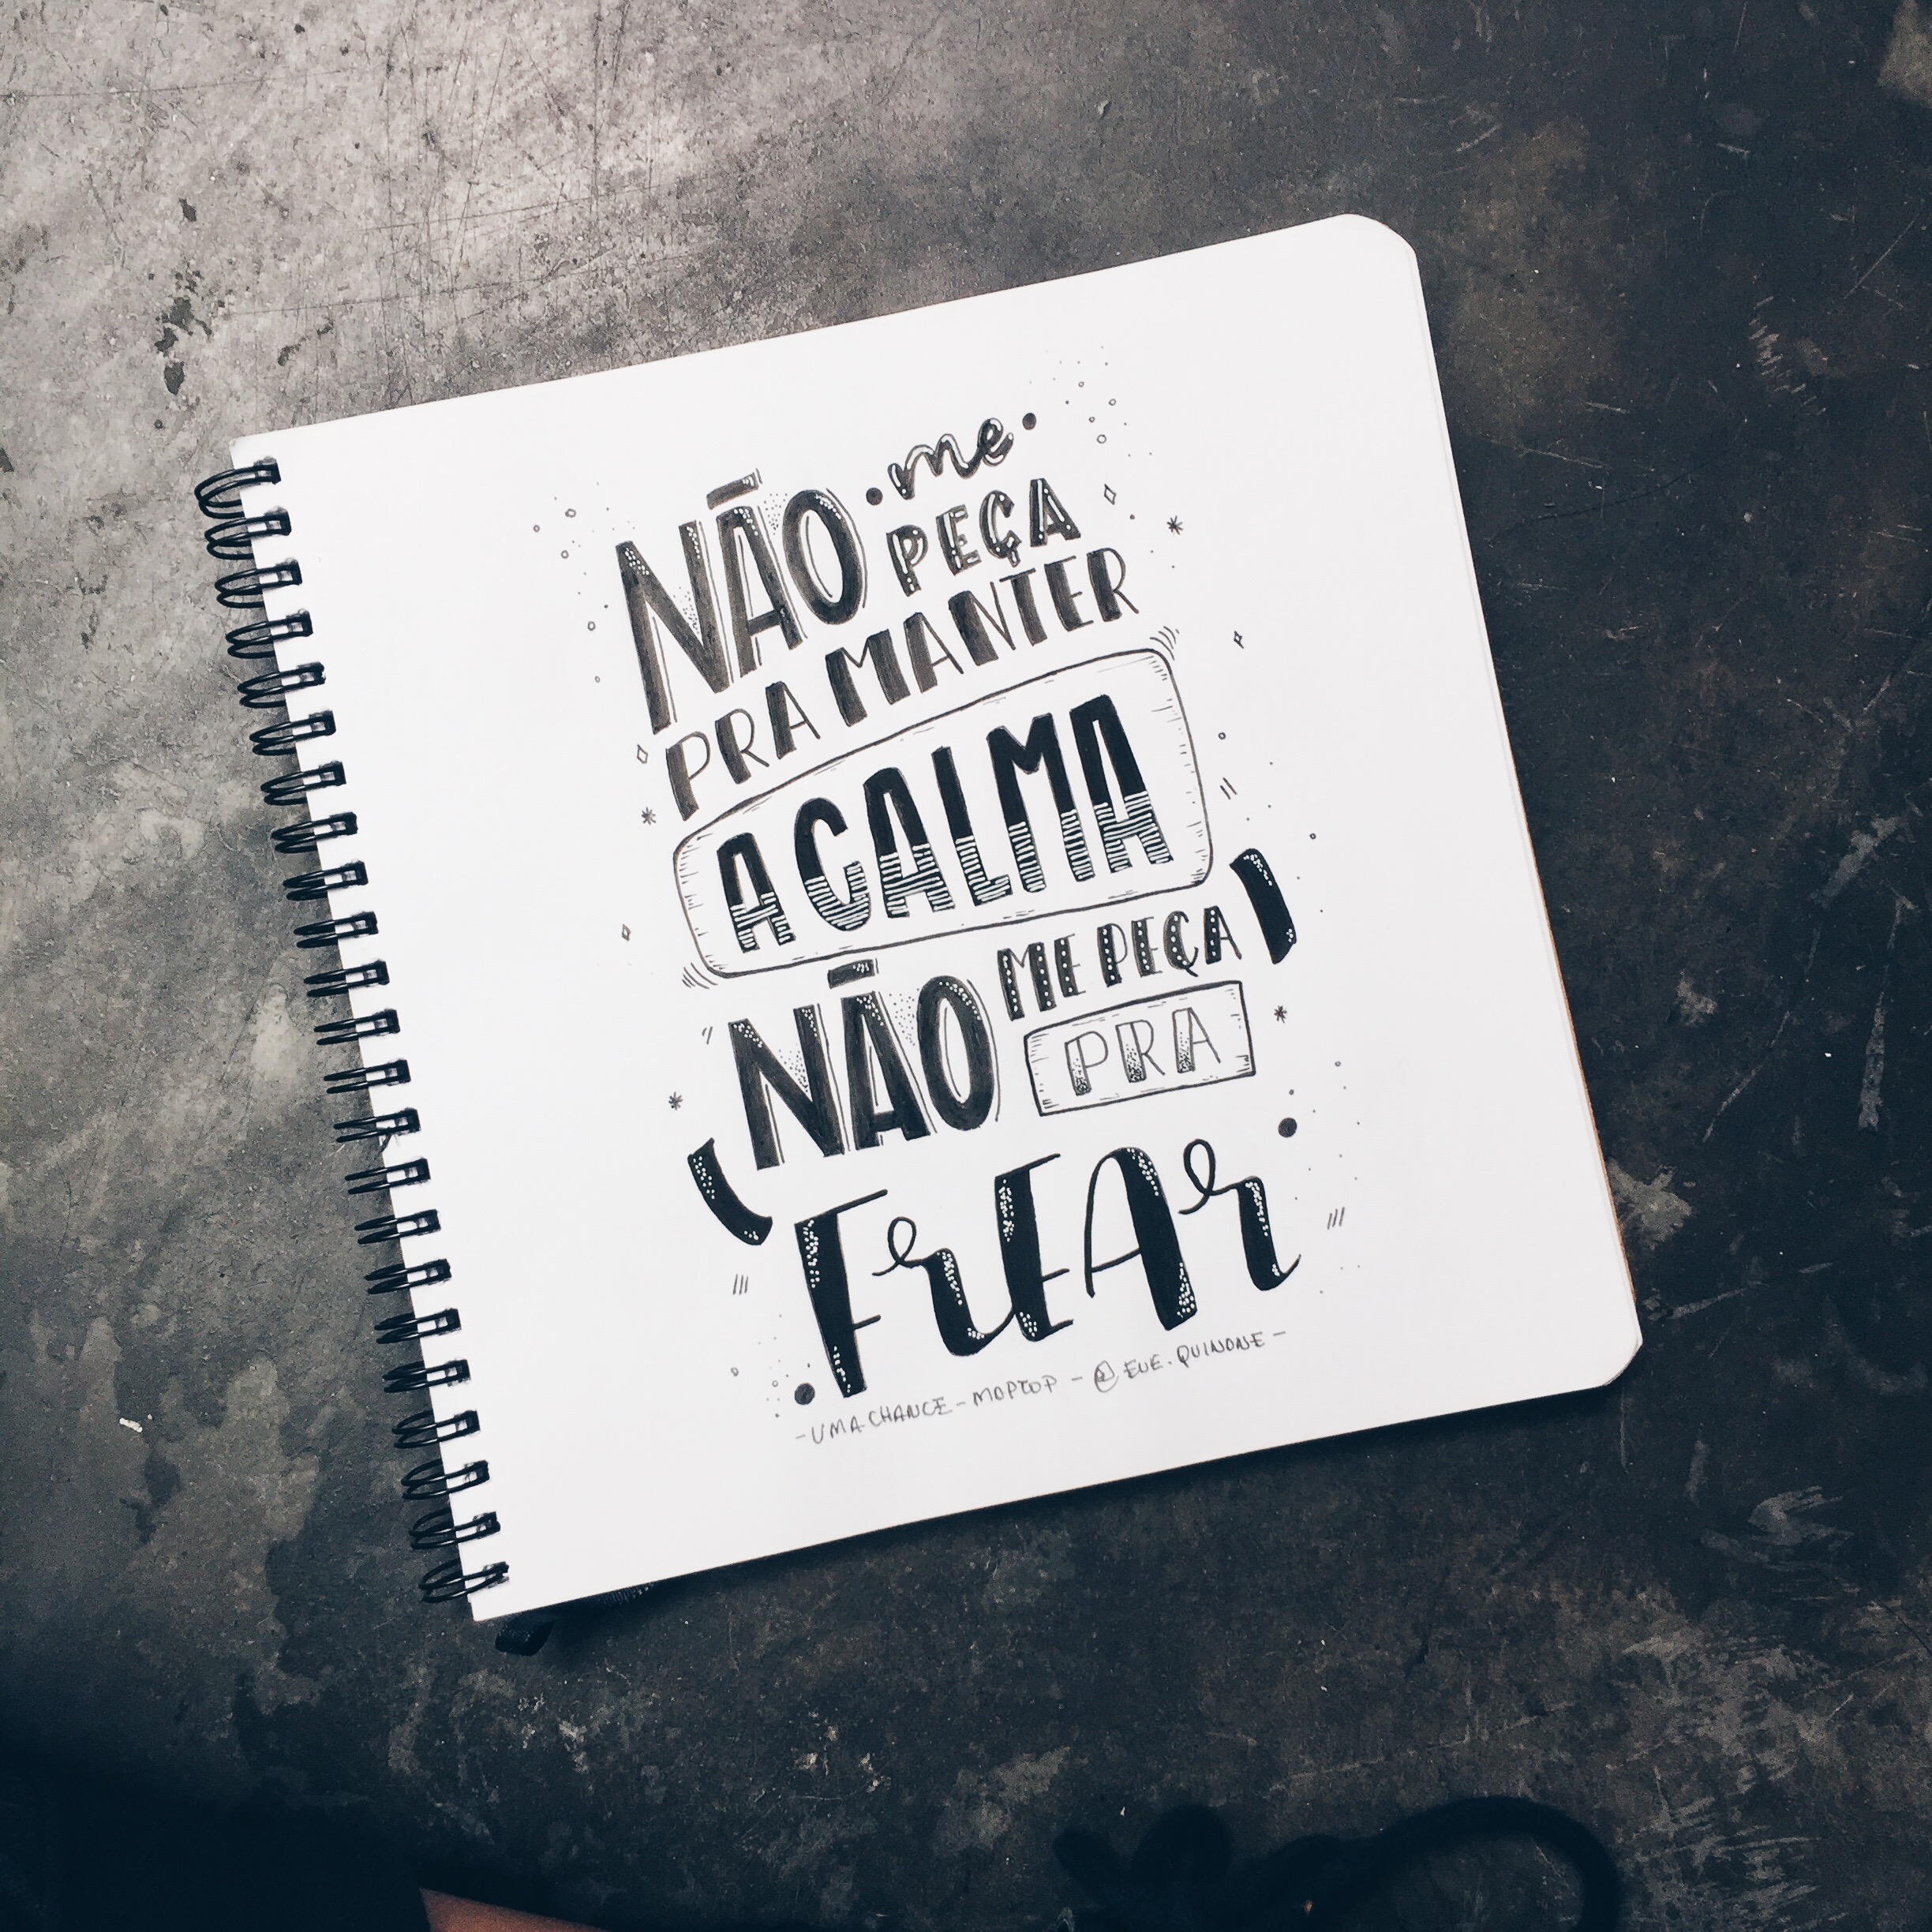 NÃO me
PEÇA
PRA MANTER
A CALMA
NÃO ME PEÇA
PRA
FrEAr
- UMA CHANCE - MOPTOP - @EVE.QUINONE -